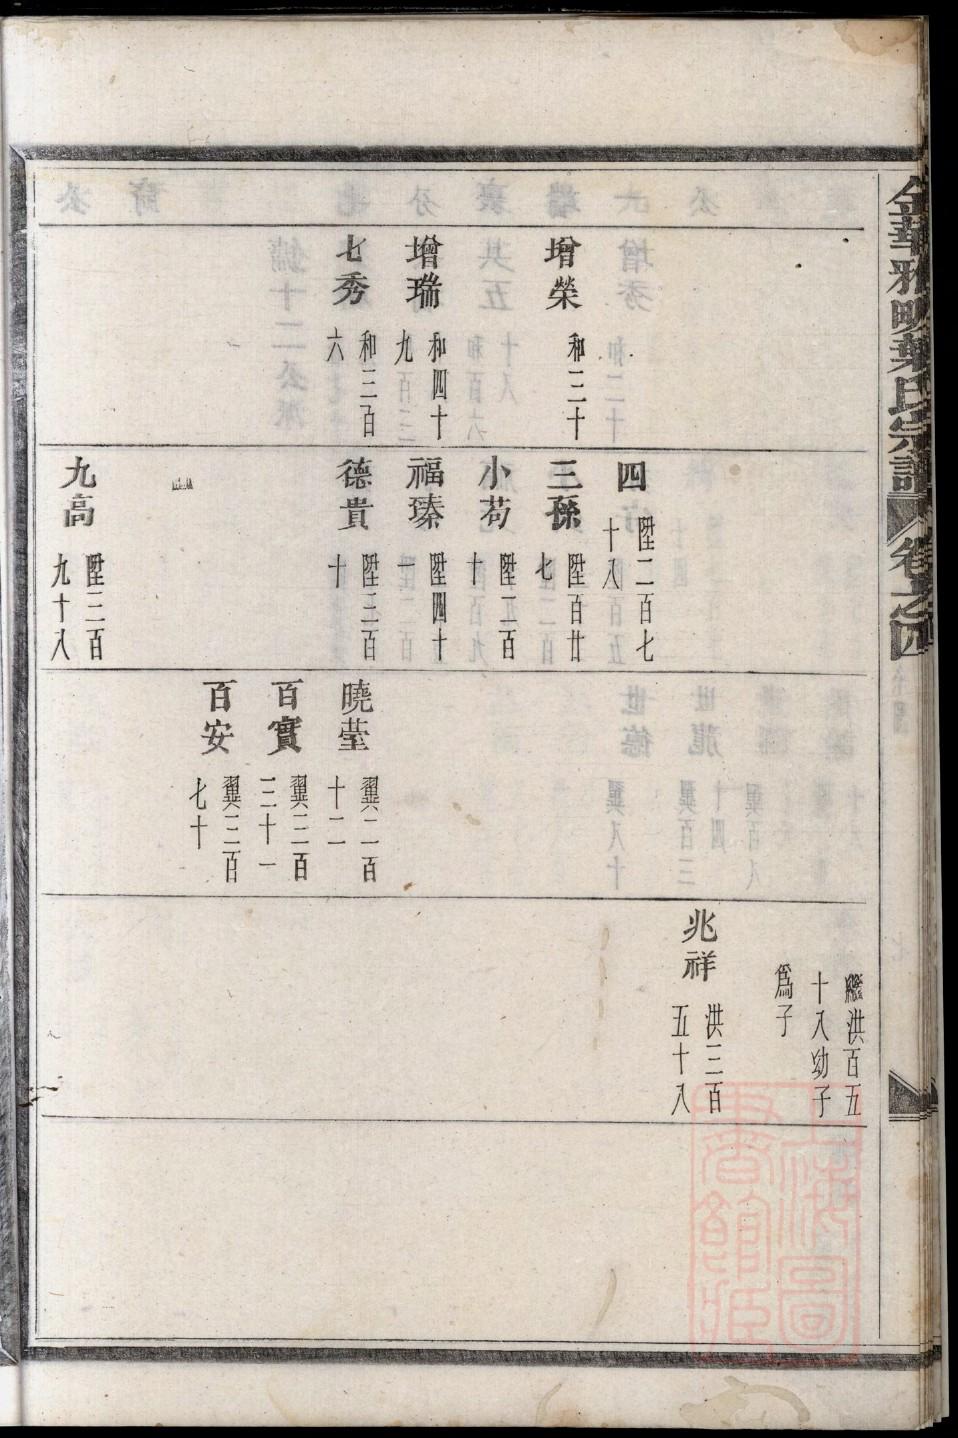 金華雅明葉氏宗譜
卷之四
增榮
和三十
增瑞
和四十
九
七秀
和三百
六
四
陞二百七
十八
三孫
陞百廿
七
小苟
陞二百
十
福瑧
陞四十
一
德貴
陞三百
十
九高
陞三百
九十八
曉瑩
翼二百
十二
百實
翼三百
三十一
百安
翼三百
七十
繼洪百五
十八幼子
爲子
兆祥
洪三百
五十八
上海圖
書館藏